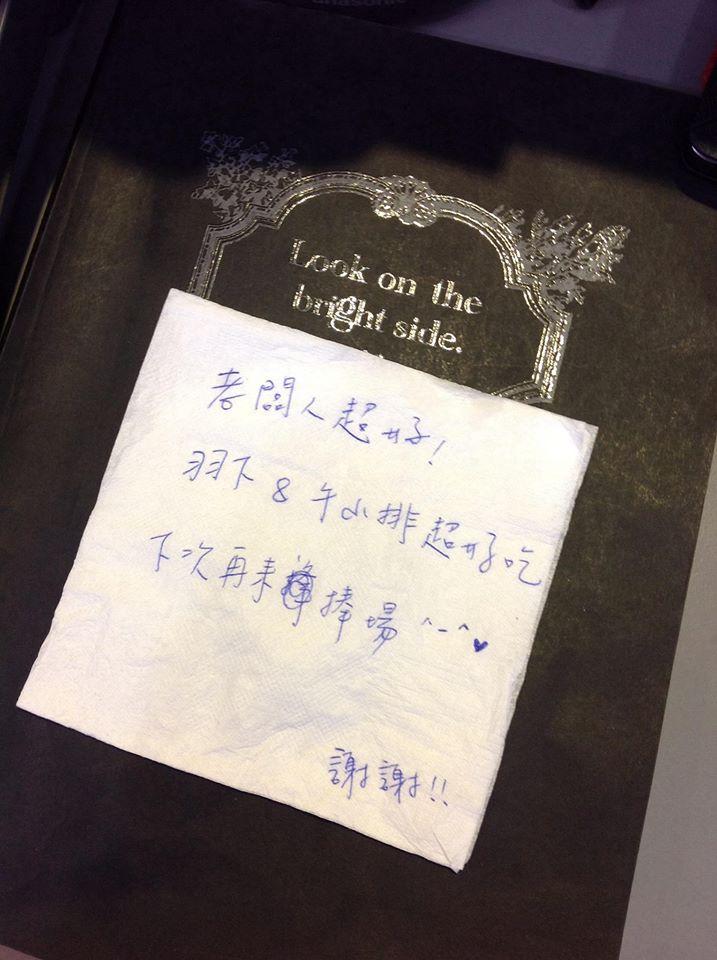 anasonic
Look on the
bright side.
老闆人超好!
羽下 & 牛小排超好吃
下次再來捧場 ^-^♥
謝謝!!